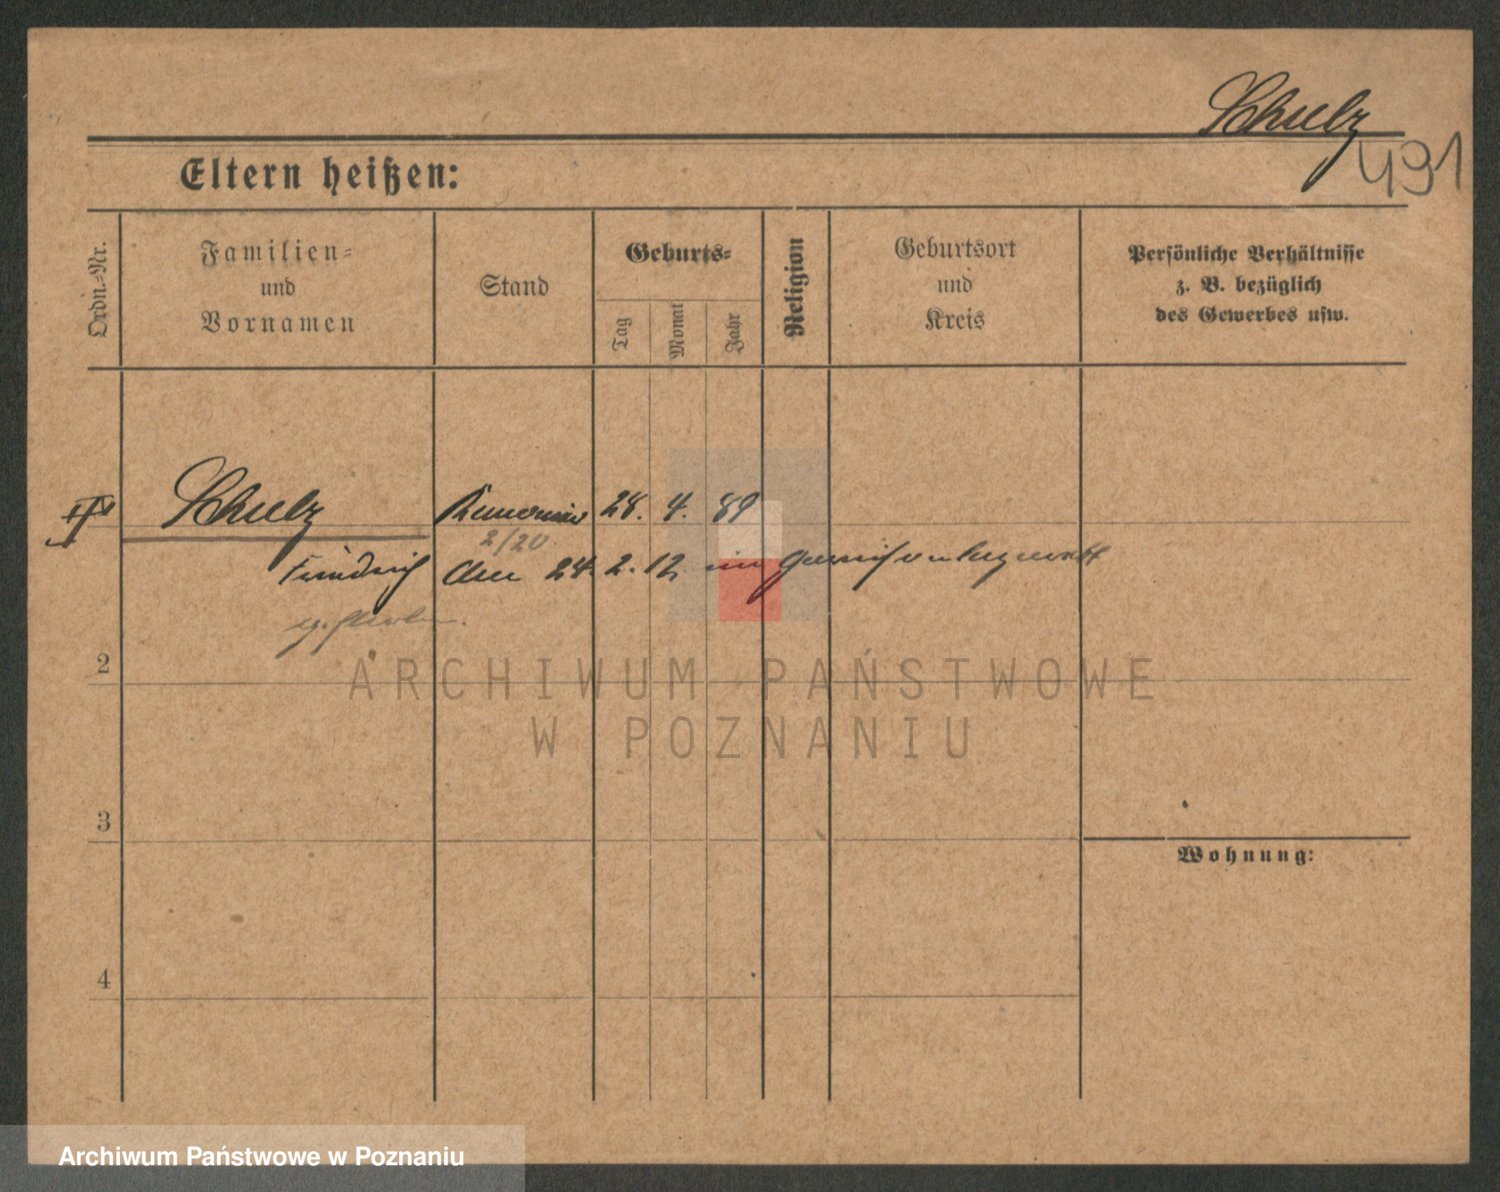 Schulz
491
Eltern heißen:
Ordn.-Nr.
Familien-
und
Vornamen
Stand
Geburts-
Tag
Monat
Jahr
Religion
Geburtsort
und
Kreis
Persönliche Verhältnisse
z. B. bezüglich
des Gewerbes usw.
Schulz 28. 4. 89
2/20
Friedrich 24. 2. 12 im
gestorben.
2
3
4
Wohnung:
ARCHIWUM PAŃSTWOWE
W POZNANIU
Archiwum Państwowe w Poznaniu